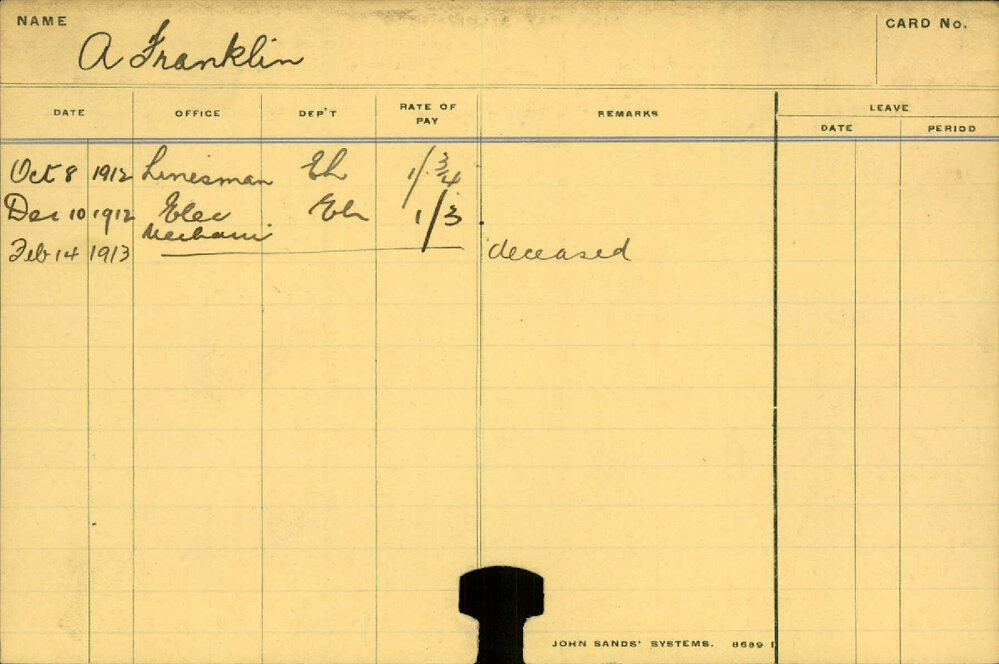 NAME
A Franklin
CARD No.
DATE OFFICE DEP'T RATE OF PAY REMARKS LEAVE
DATE PERIOD
Oct 8 1912 Linesman EL 1/3/4
Dec 10 1912 Elec EL 1/3
Mechani
Feb 14 1913 deceased
JOHN SANDS' SYSTEMS. 8609